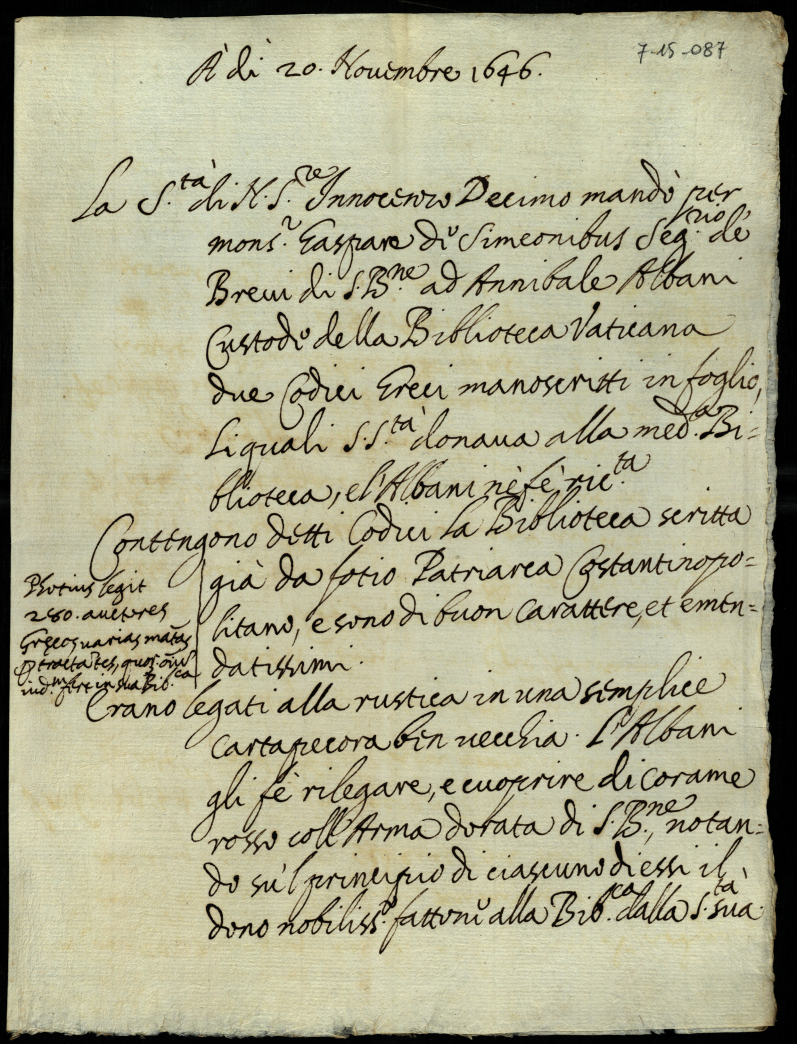 7-15-087
A' dì 20. Nouembre 1646.
La S.tà di N. S.re Innocenzo Decimo mandò per
mons.r Gaspare de Simeonibus Seg.rio de
Breui di S. B.ne ad Annibale Albani
Custode della Biblioteca Vaticana
due Codici Greci manoscritti in foglio,
li quali S. S.tà donaua alla med.a Bi=
blioteca, e l'Albani nè fè ric.ta
Contengono detti Codici la Biblioteca scritta
già da fotio Patriarca Costantinopo=
litano, e sono di buon carattere, et emen=
datissimi.
Photius legit
280. auctores
Grecos uarias
tractates, quos
ind.m fert in sua Bib.ca
Erano legati alla rustica in una semplice
cartapecora ben uecchia. L'Albani
gli fè rilegare, e cuoprire di corame
rosso coll'Arma dorata di S. B.ne, notan=
do sù'l principio di ciascuno di essi il
dono nobiliss.o fattone alla Bib.ca dalla S.tà sua.